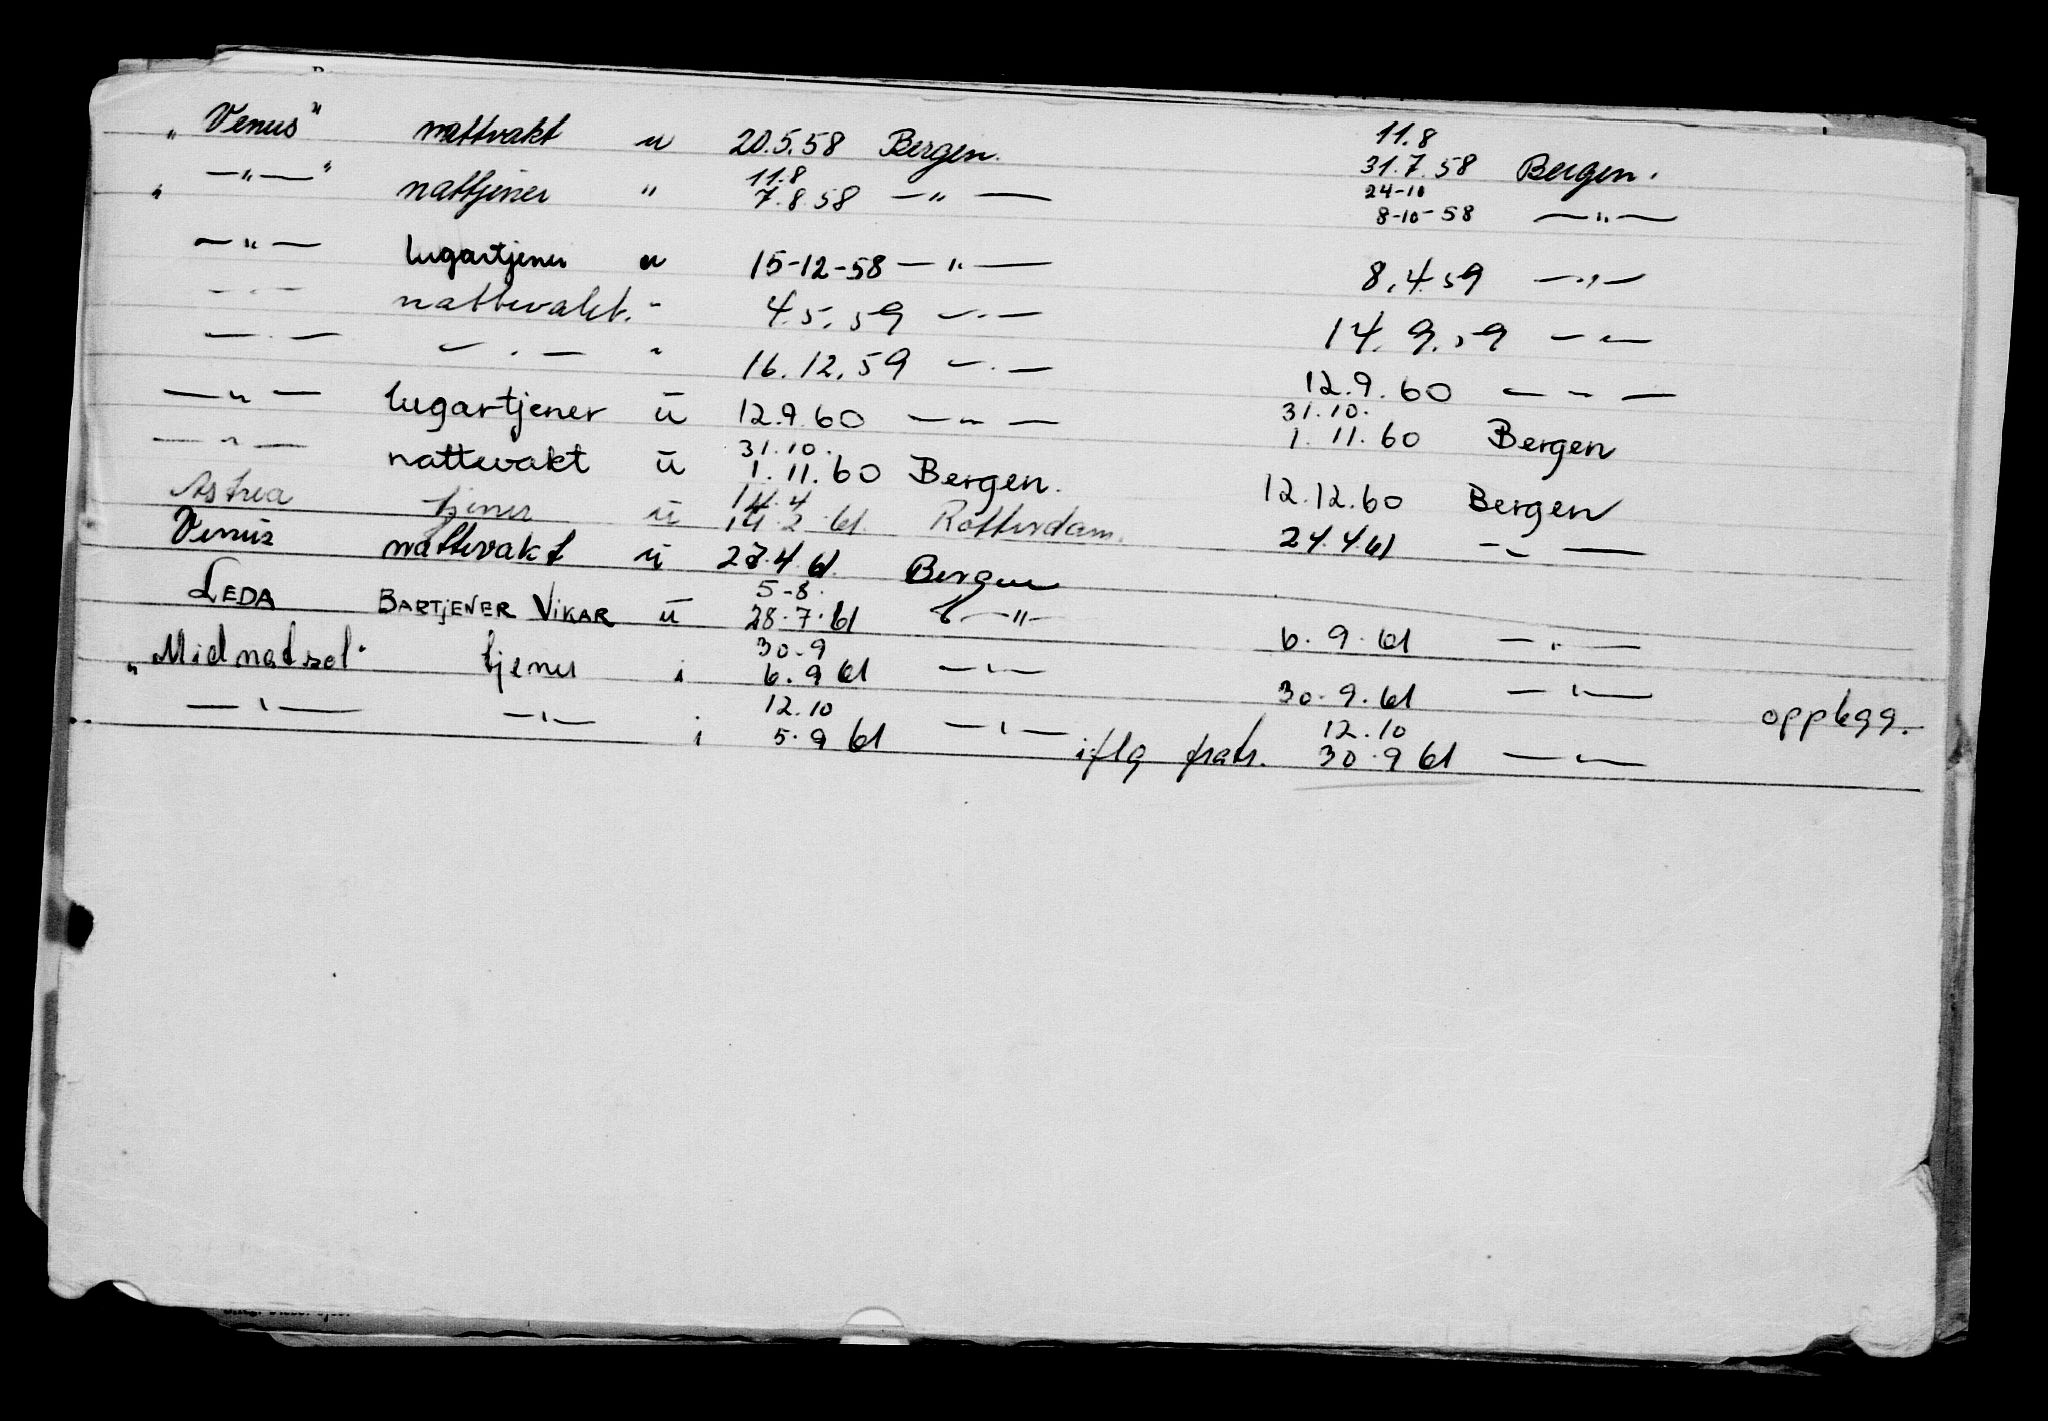 „ Venus " nattvakt u 20.5.58 Bergen. 11.8 31.7.58 Bergen.
„ — " — " nattjener " 11.8 7.8.58 — " — 24-10 8-10-58 — " —
— " — lugartjener u 15-12-58 — " — 8.4.59 — " —
— " — nattevakt. " 4.5.59 — " — 14.9.59 — " —
— " — — " — " 16.12.59 — " — 12.9.60 — " —
— " — lugartjener ū 12.9.60 — " — 31.10. 1.11.60 Bergen
— " — nattevakt ū 31.10. 1.11.60 Bergen. 12.12.60 Bergen
Astrea tjener ū 14.4 14.2.61. Rotterdam. 24.4.61 — " —
Venus nattevakt ū 27.4.61. Bergen
LEDA BARTJENER VIKAR ū 5-8. 28.7.61 — " — 6.9.61 — " —
„ Midnatsol " tjener i 30.9 6.9 61 — " — 30.9.61 — " —
— " — — " — i 12.10 5.9 61 — " — iflg 12.10 30.9 61 — " — oppbgg.